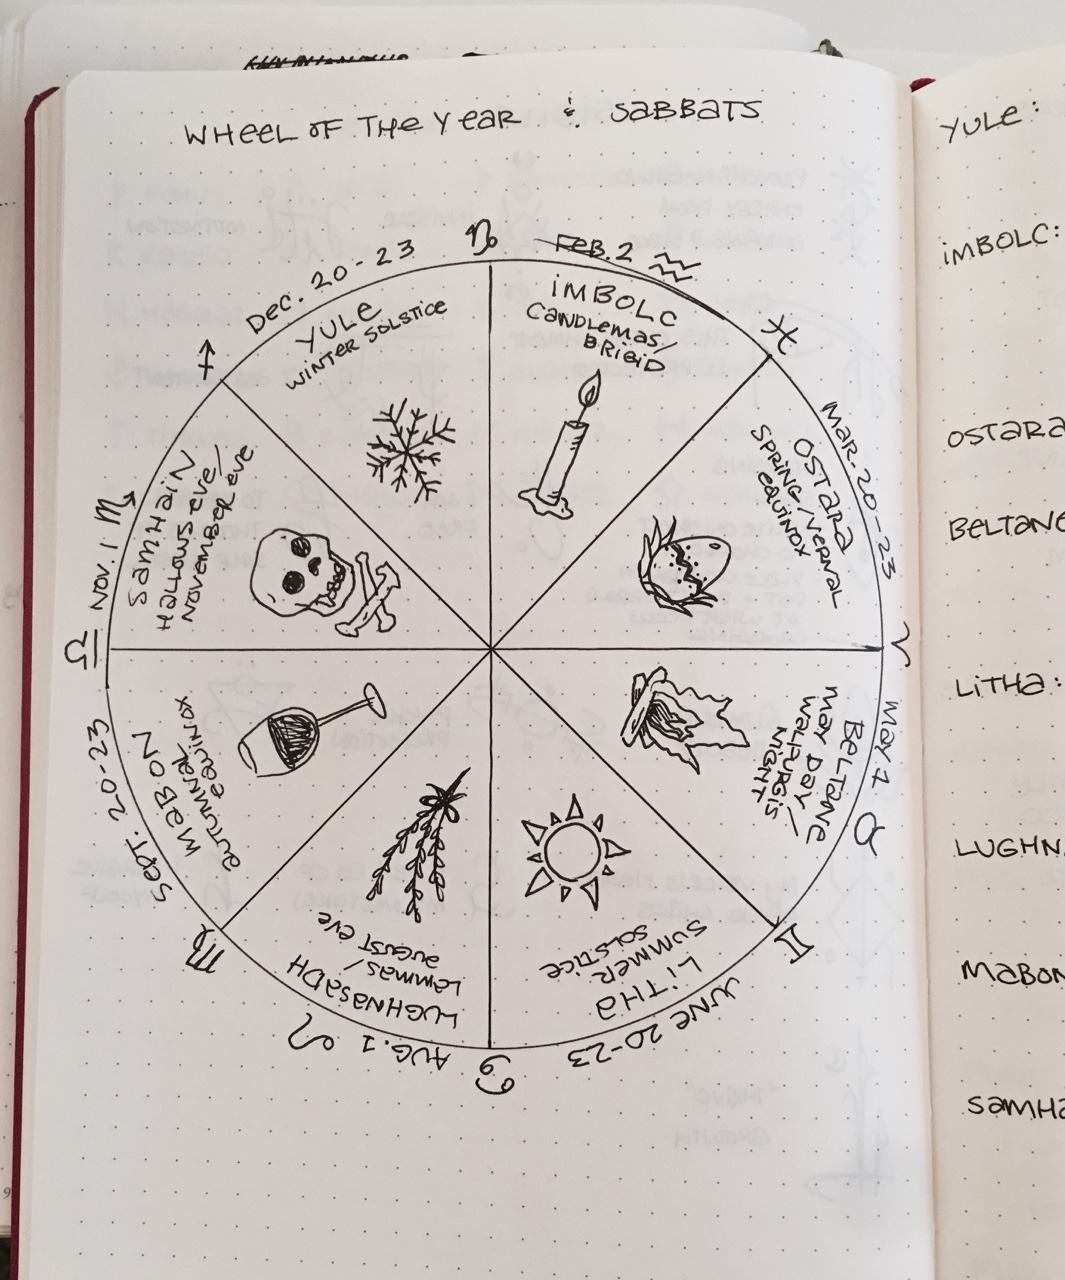 WHEEL OF THE YEAR & SABBATS
Dec. 20-23
YULE
WINTER SOLSTICE
FEB. 2
IMBOLC
CANDLEMAS/
BRIGID
MAR. 20-23
OSTARA
SPRING/VERNAL
EQUINOX
MAY 1
BELTANE
MAY DAY/
WALPURGIS
NIGHT
JUNE 20-23
LITHA
SUMMER
SOLSTICE
AUG. 1
LUGHNASADH
LAMMAS/
AUGUST EVE
SEPT. 20-23
MABON
AUTUMNAL
EQUINOX
NOV. 1
SAMHAIN
HALLOWS EVE/
NOVEMBER EVE
YULE:
IMBOLC:
OSTARA
BELTANE
LITHA:
LUGHN
MABON
SAMHA